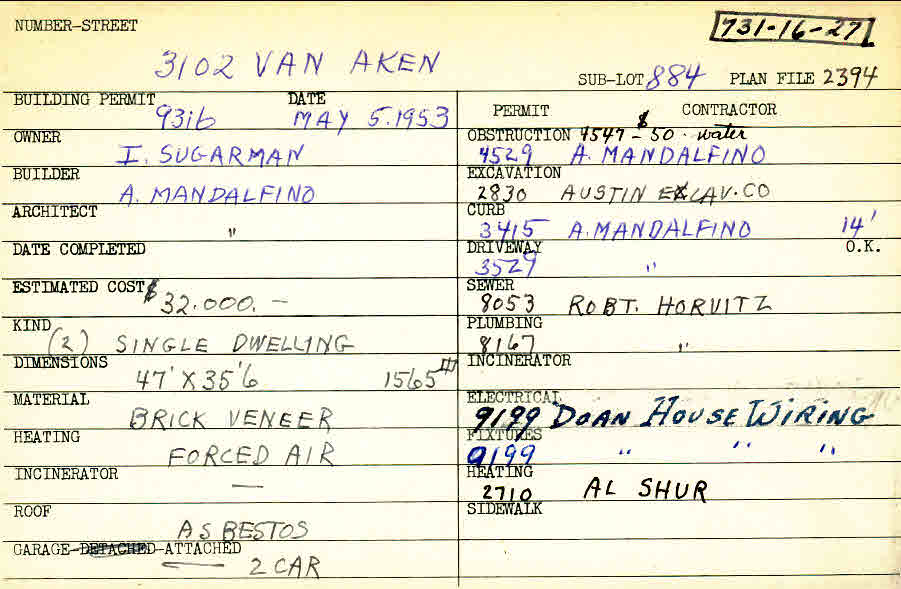 NUMBER-STREET
731-16-27
3102 VAN AKEN
SUB-LOT 884 PLAN FILE 2394
BUILDING PERMIT DATE
9316 MAY 5.1953
OWNER
I. SUGARMAN
BUILDER
A. MANDALFINO
ARCHITECT
"
DATE COMPLETED
ESTIMATED COST $
32.000. —
KIND
(2) SINGLE DWELLING
DIMENSIONS
47' X 35'6 1565 #
MATERIAL
BRICK VENEER
HEATING
FORCED AIR
INCINERATOR
—
ROOF
ASBESTOS
GARAGE-DETACHED-ATTACHED
2 CAR
PERMIT $ CONTRACTOR
OBSTRUCTION 4547 - 50. water
4529 A. MANDALFINO
EXCAVATION
2830 AUSTIN EXCAV. CO
CURB
3415 A. MANDALFINO 14'
DRIVEWAY O.K.
3529 "
SEWER
8053 ROBT. HORVITZ
PLUMBING
8167 "
INCINERATOR
ELECTRICAL
9199 DOAN HOUSE WIRING
FIXTURES
9199 " " "
HEATING
2710 AL SHUR
SIDEWALK